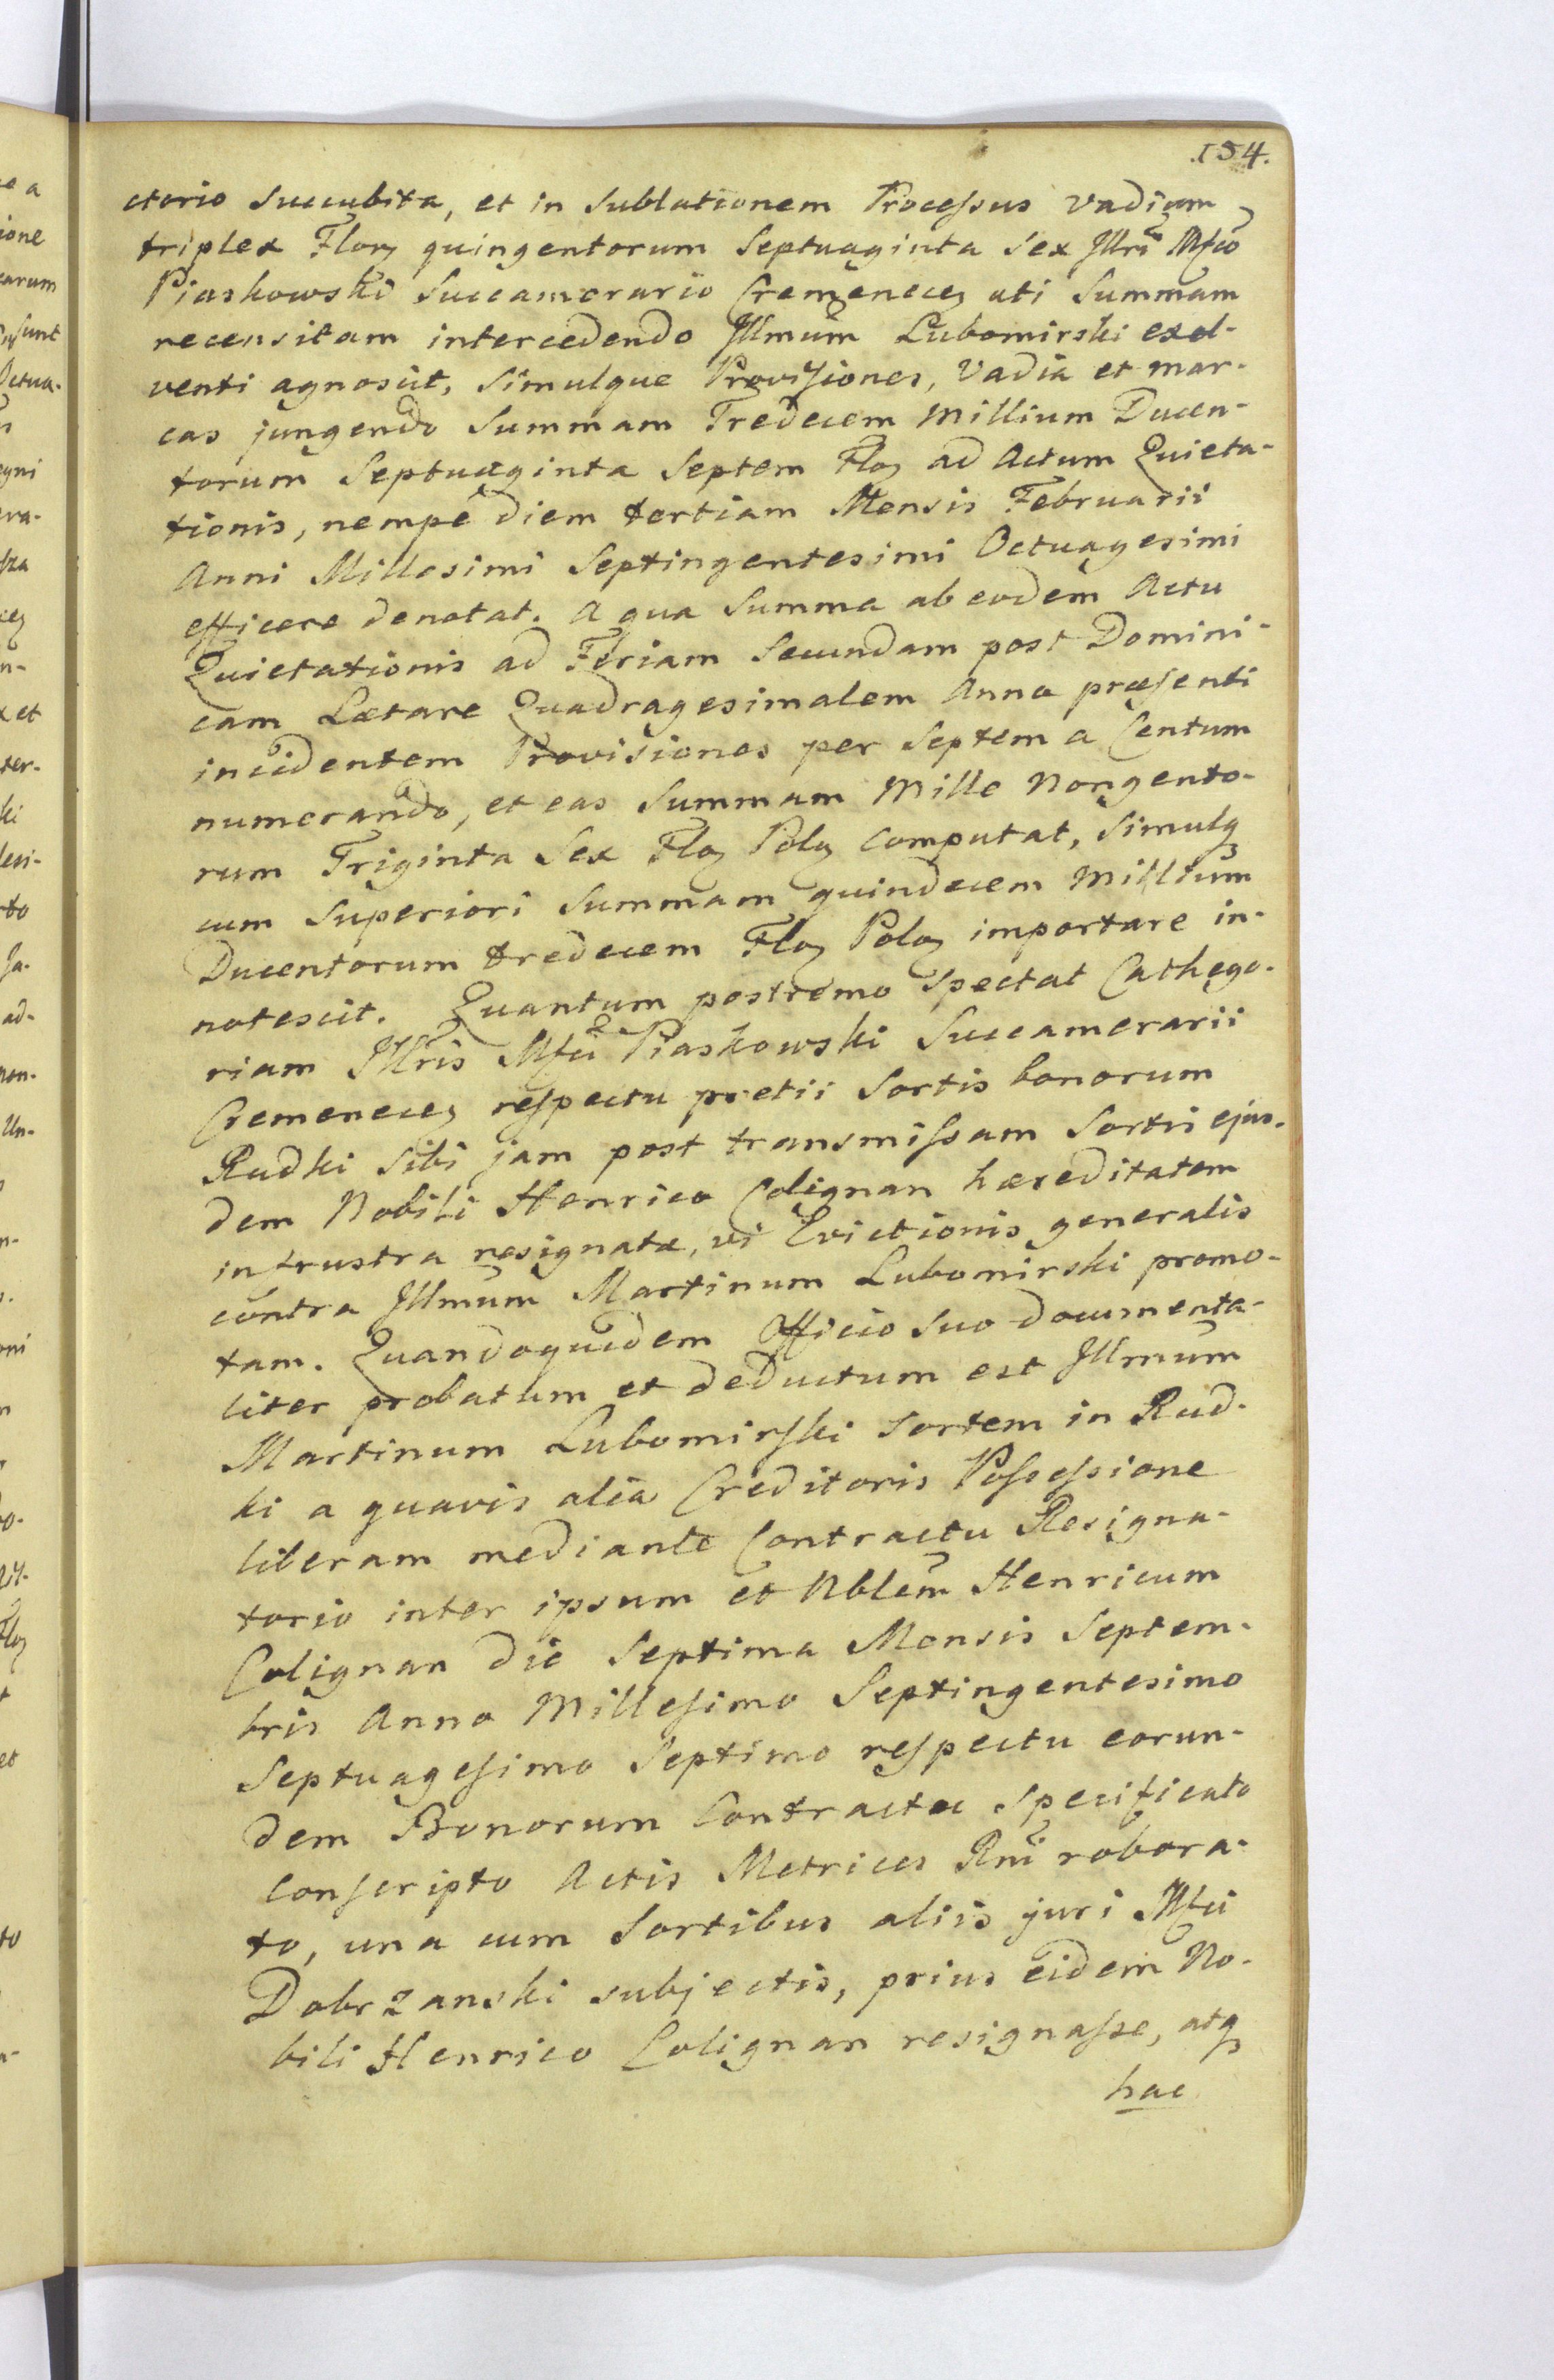 .154.
ctorio Succubita, et in Sublationem Processus Vadium
triplex Floȝ quingentorum Septuaginta Sex Jllri Mfco
Piaskowski Succamerario Cremeneceȝ uti Summam
recensitam intercedendo Jllmum Lubomirski exol-
venti agnoscit, Simulque Provisiones, Vadia et mar-
cas jungendo Summam Tredecem Millium Ducen-
torum Septuaginta Septem Floȝ ad Actum Quieta-
tionis, nempe diem tertiam Mensis Februarii
Anni Millesimi Septingentesimi Octuagesimi
efficere denotat. A qua Summa ab eodem Actu
Quietationis ad Feriam Secundam post Domini-
cam Lætare Quadragesimalem Anno præsenti
incidentem Provisiones per Septem a Centum
numerando, et eas Summam Mille Nongento-
rum Triginta Sex Floȝ Poloȝ computat, Simulq
cum Superiori Summam quindecem Millium
Ducentorum tredecem Floȝ Poloȝ importare in-
notescit. Quantum postremo Spectat Cathego-
riam Jllris Mfci Piaskowski Succamerarii
Cremeneceȝ respectu pretii Sortis bonorum
Rudki Sibi jam post transmissam Sortis ejus-
dem Nobili Henrico Colignan hæreditatem
infrustra resignatæ, vi Evictionis generalis
contra Jllmum Martinum Lubomirski promo-
tam. Quandoquidem Officio Suo documenta-
liter probatum et deductum est Jllmum
Martinum Lubomirski Sortem in Rud-
ki a quavis alia Creditoris Possessione
liberam mediante Contractu Resigna-
torio inter ipsum et Nblem Henricum
Colignan die Septima Mensis Septem-
bris Anno Millesimo Septingentesimo
Septuagesimo Septimo respectu eorun-
dem Bonorum Contractu Specificato
Conscripto Actis Metrices Rni robora-
to, una cum Sortibus aliis juri Mfci
Dobrzanski subjectis, prius eidem No-
bili Henrico Colignan resignasse, atq
hac